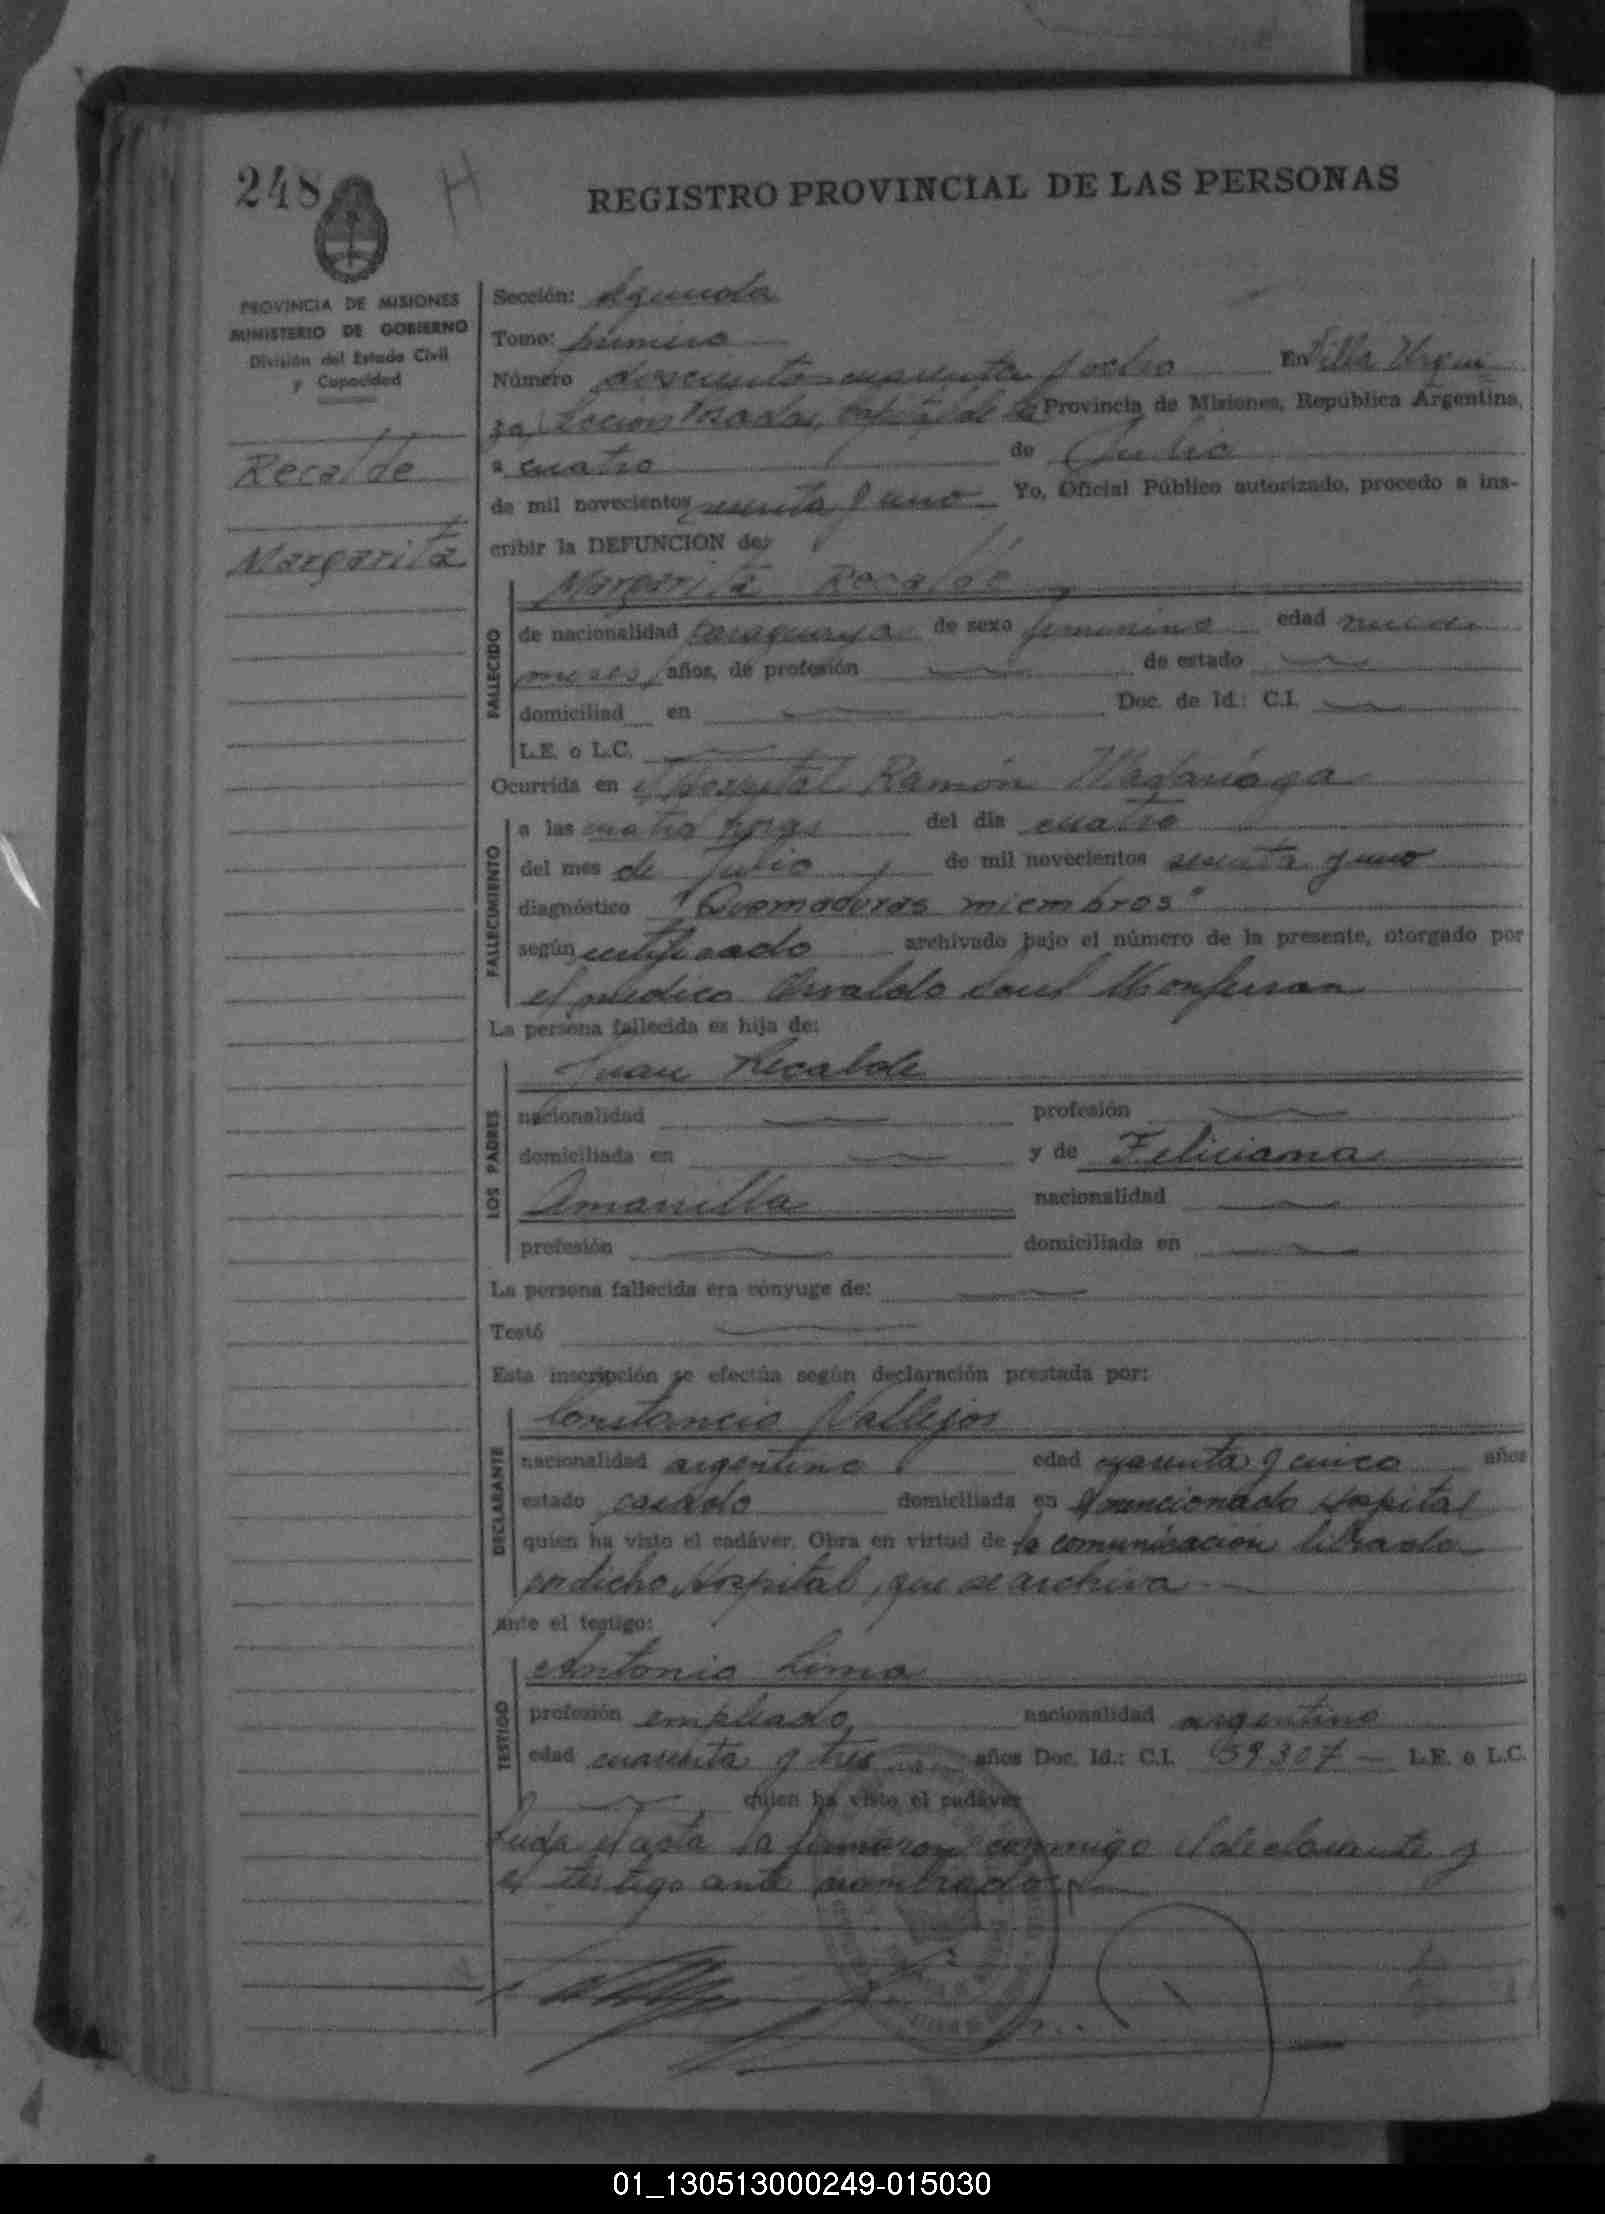 248
H
REGISTRO PROVINCIAL DE LAS PERSONAS
PROVINCIA DE MISIONES
MINISTERIO DE GOBIERNO
División del Estado Civil
y Capacidad
Recalde
Margarita
Sección: segunda
Tomo: primero
Número doscientos cuarenta y ocho En Villa Urqui
za, Sección Posadas, Capital de la Provincia de Misiones, República Argentina,
a cuatro de Julio
de mil novecientos sesenta y uno Yo, Oficial Público autorizado, procedo a ins-
cribir la DEFUNCION de:
Margarita Recalde
FALLECIDO
de nacionalidad paraguaya de sexo femenino edad nueve
meses, años, de profesión de estado
domiciliad en Doc. de Id.: C.I.
L.E. o L.C.
Ocurrida en el Hospital Ramón Madariaga
FALLECIMIENTO
a las cuatro horas del día cuatro
del mes de Julio de mil novecientos sesenta y uno
diagnóstico "Quemaduras miembros"
según certificado archivado bajo el número de la presente, otorgado por
el médico Osvaldo Saul Monferran
La persona fallecida es hija de:
LOS PADRES
Juan Recalde
nacionalidad profesión
domiciliada en y de Feliciana
Amarilla nacionalidad
profesión domiciliada en
La persona fallecida era cónyuge de:
Testó
Esta inscripción se efectúa según declaración prestada por:
DECLARANTE
Constancio Vallejos
nacionalidad argentino edad cuarenta y cinco años
estado casado domiciliada en el mencionado Hospital
quien ha visto el cadáver. Obra en virtud de la comunicación librada
por dicho Hospital, que se archiva
ante el testigo:
TESTIGO
Antonio Lima
profesión empleado, nacionalidad argentino
edad cuarenta y tres años Doc. Id.: C.I. 59.307 — L.E. o L.C.
quien ha visto el cadáver
Leída el acta la firmaron conmigo el declarante y
el testigo ante nombrado
01_130513000249-015030